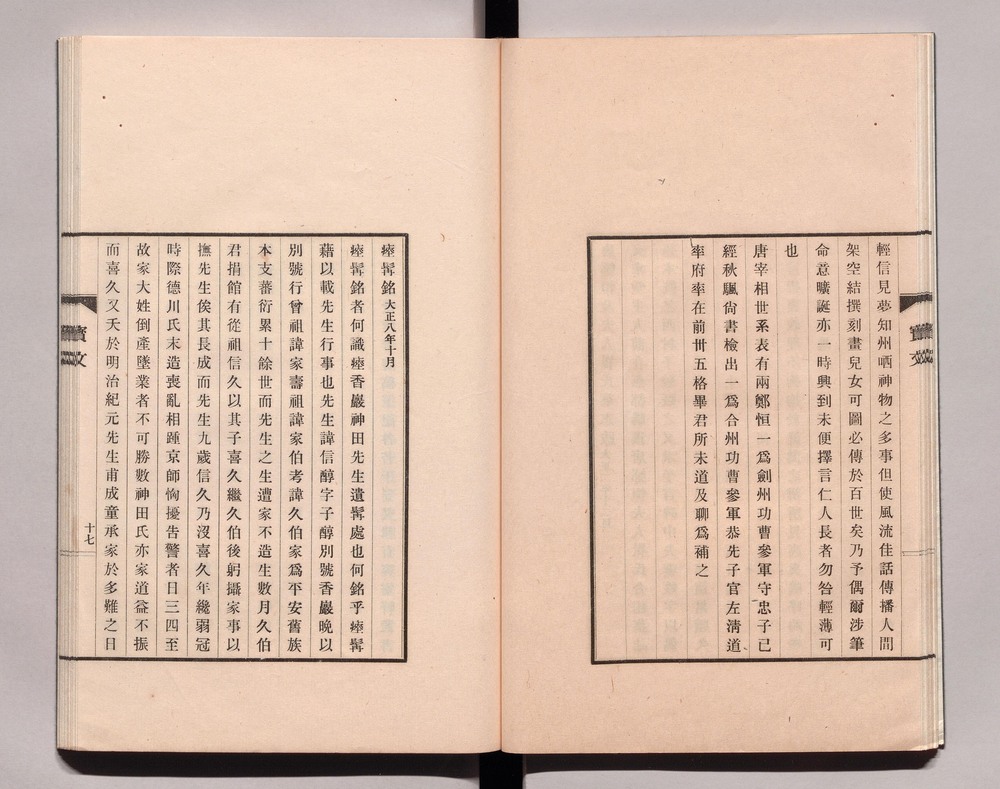 輕信見夢知州哂神物之多事但使風流佳話傳播人間
架空結撰刻畫兒女可圖必傳於百世矣乃予偶爾涉筆
命意曠誕亦一時興到未便擇言仁人長者勿咎輕薄可
也
唐宰相世系表有兩鄭恒一爲劍州功曹參軍守忠子己
經秋颿尙書檢出一爲合州功曹參軍恭先子官左淸道
率府率在前卅五格畢君所未道及聊爲補之
瘞髯銘大正八年十月
瘞髯銘者何識瘞香巖神田先生遺髯處也何銘乎瘞髯
藉以載先生行事也先生諱信醇字子醇別號香巖晚以
別號行曾祖諱家壽祖諱家伯考諱久伯家爲平安舊族
本支蕃衍累十餘世而先生之生遭家不造生數月久伯
君捐館有從祖信久以其子喜久繼久伯後躬攝家事以
撫先生俟其長成而先生九歲信久乃沒喜久年纔弱冠
時際德川氏末造喪亂相踵京師恟擾告警者日三四至
故家大姓倒產墜業者不可勝數神田氏亦家道益不振
而喜久又夭於明治紀元先生甫成童承家於多難之日
十七